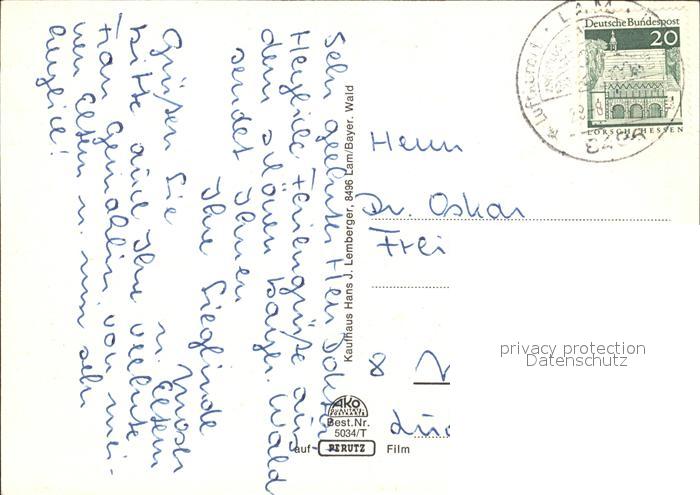 Sehr geehrter Herr Doktor
Herzliche Feriengrüße aus
dem schönen Bayer. Wald
sendet Ihnen
Ihre Sieglinde
u. Eltern
Grüßen Sie
bitte auch Ihre verehrte
Frau Gemahlin von mei-
nen Eltern u. mir sehr
herzlich!
Kaufhaus Hans J. Lemberger, 8496 Lam/Bayer. Wald
AKO
QUALITÄTS-
POSTKARTE
Best.Nr.
5034/T
auf PERUTZ Film
Deutsche Bundespost
20
LORSCH/HESSEN
LAM
8496
Herrn
Dr. Oskar
Frei
8
privacy protection
Datenschutz